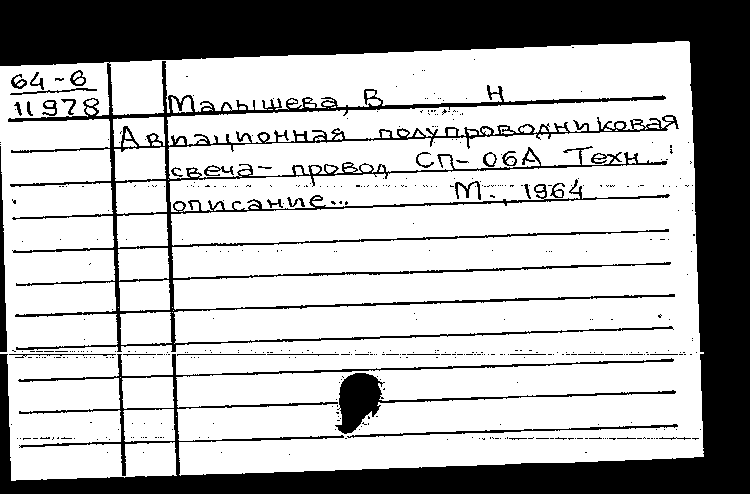 64-6
11978
Малышева, В Н
Авиационная полупроводниковая
свеча- провод СП-06А Техн.
описание... М., 1964